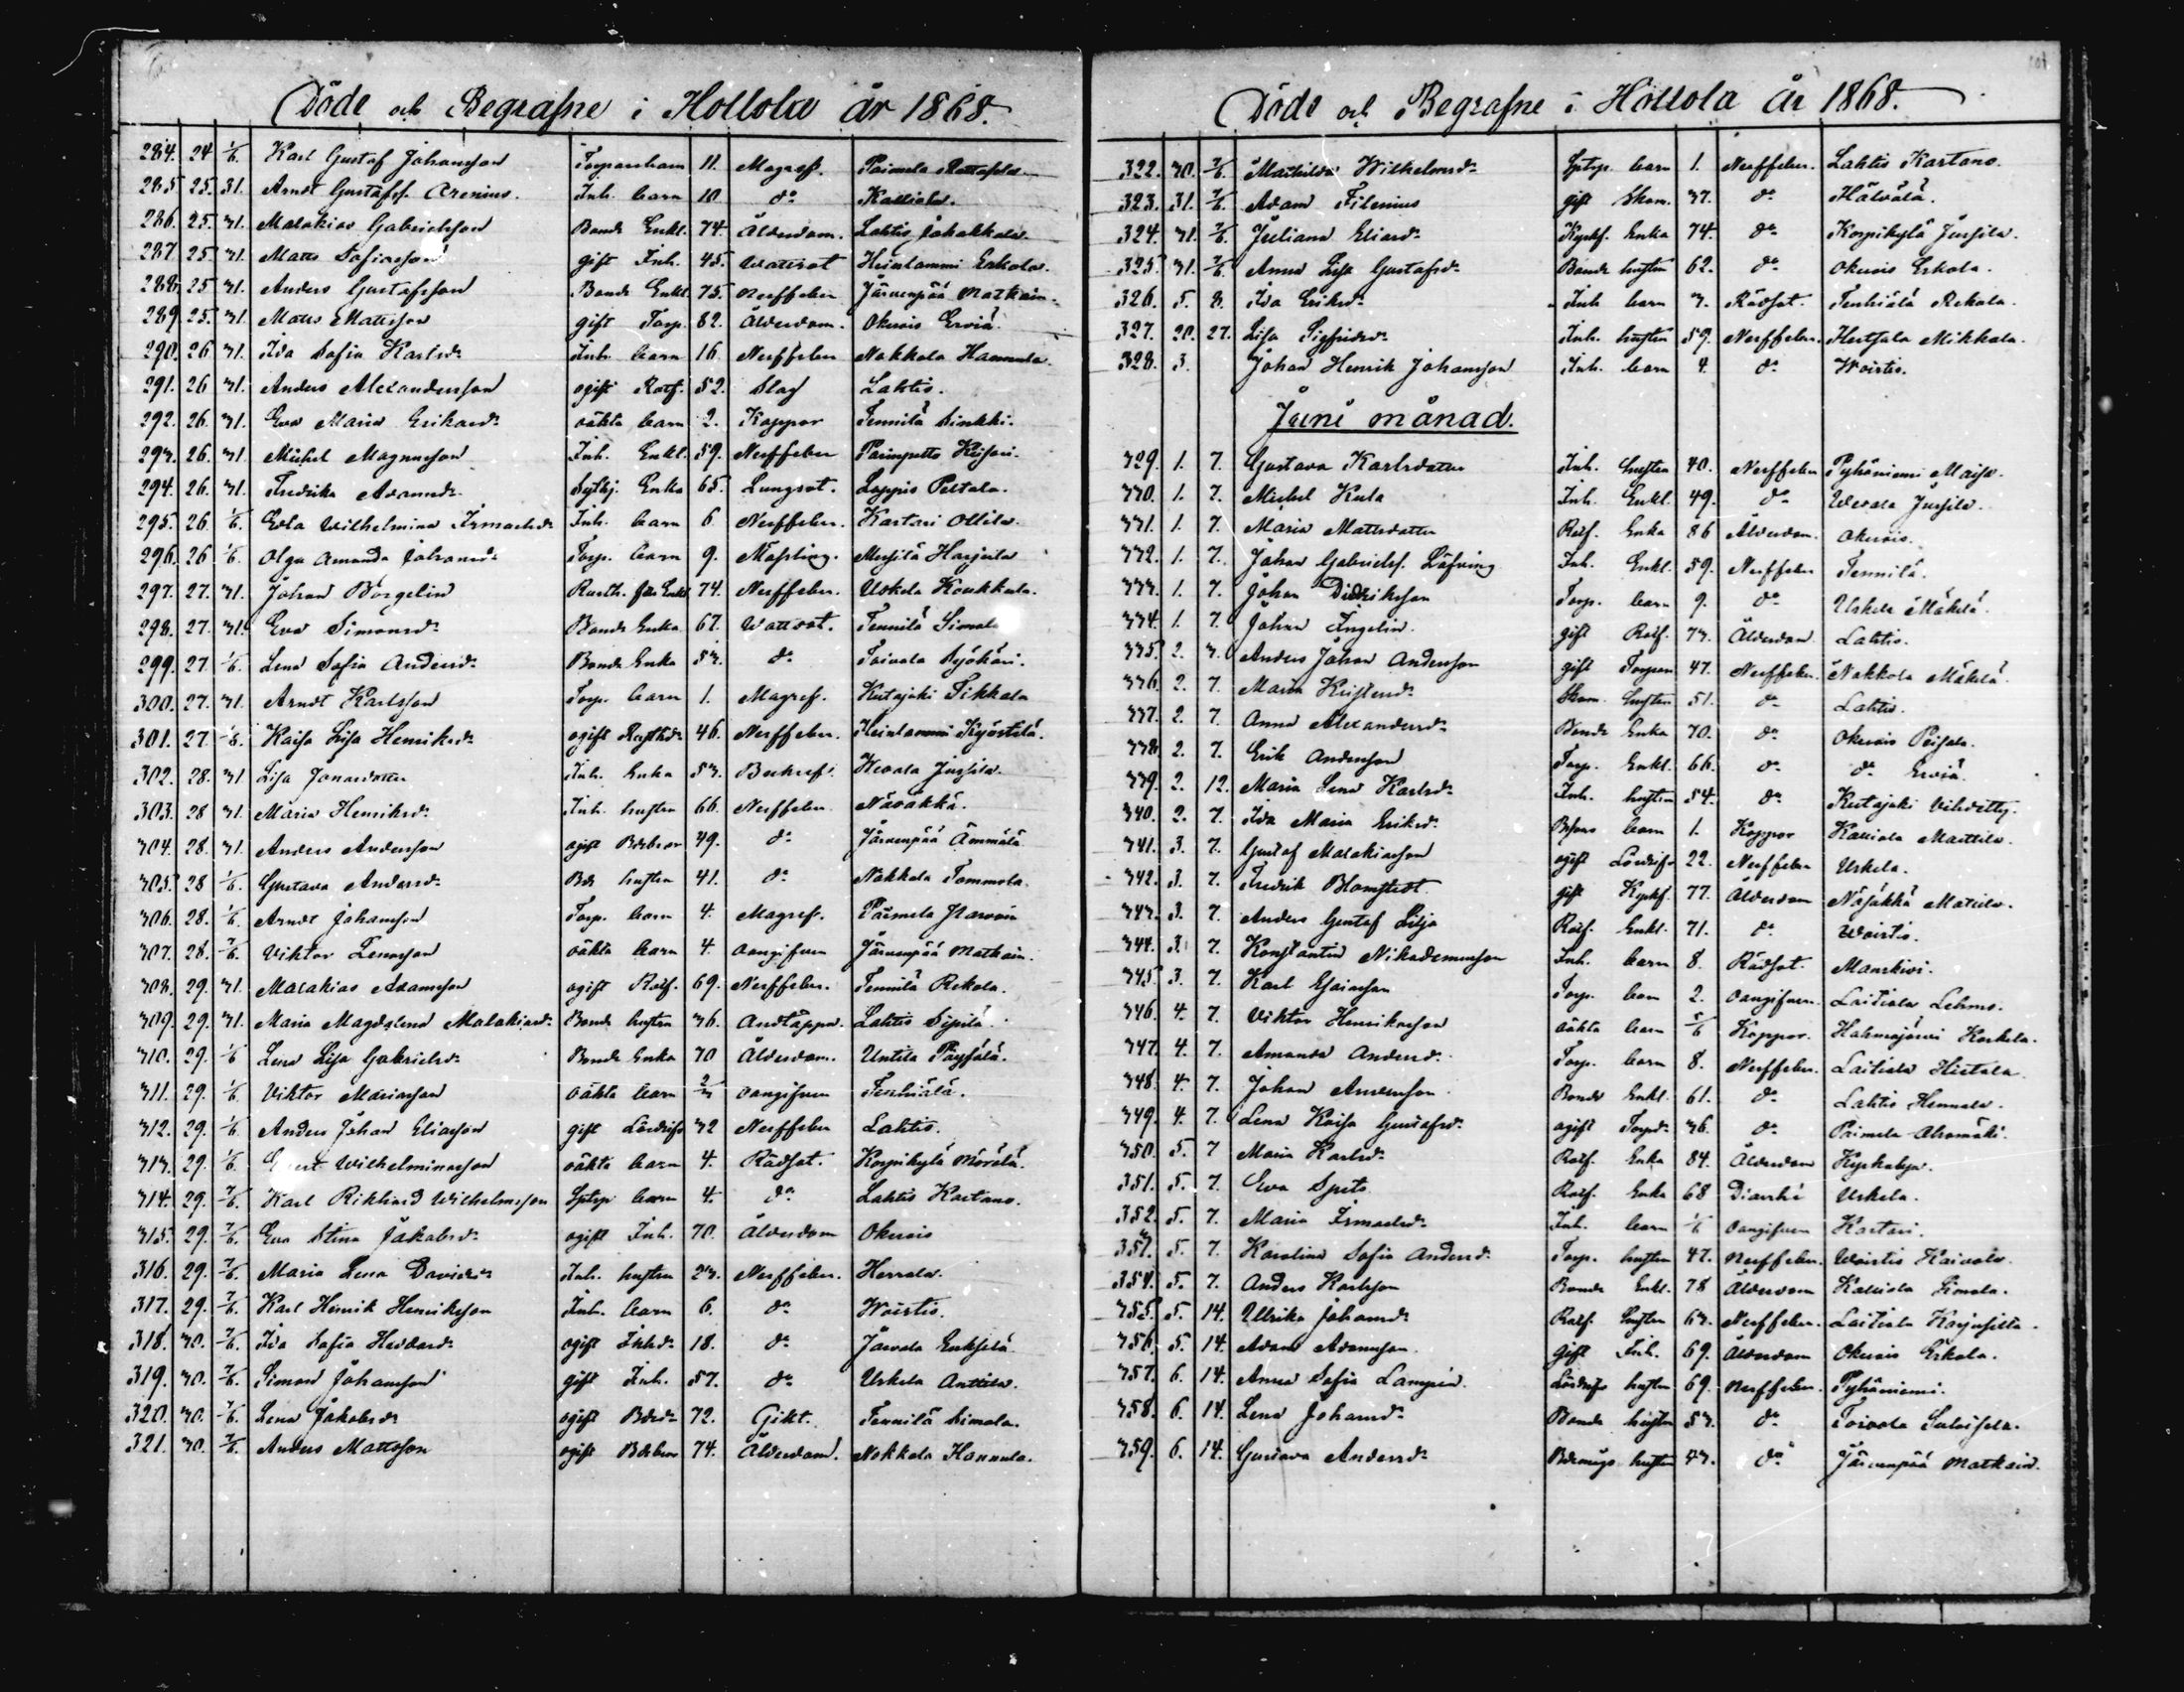 Döde och Begrafne i Hollola år 1868.
284. 24 1/6. Karl Gustaf Johansson Torparebarn 11. Magref. Paimela
285. 25. 31. Arndt Gustafss. Arenius. Inh. barn 10 do Kalliola.
286. 25. 31. Malakias Gabrielsson Bonde Enkl. 74. Ålderdom. Lahtis Jokakkala.
287. 25. 31. Matts gift Inh. 45. Wattsot Heinlammi Erkola.
288. 25 31. Anders Gustafsson Bonde Enkl. 75. Nerffeber Järvenpää Matkain.
289. 25. 31. Matts Mattsson gift Torp. 82. Ålderdom. Okerois Erviä.
290. 26 31. Ida Sofia Karlsdr Inh. barn 16. Nerffeber Nokkola Hannula.
291. 26 31. Anders Alexandersson ogift Rotf. 52. Slag Lahtis.
292. 26. 31. Eva Maria oäkta barn 2. Koppor Tennilä Sinkki.
293. 26. 31. Mickel Magnusson Inh. Enkl. 59. Nerffeber Parinpelto
294. 26. 31. Fredrika Adamsdr Enka 65. Lungsot. Lappis Peltola.
295. 26. 1/6. Edla Wilhelmina Ismaelsdr Inh. barn 6 Nerffeber. Kastari Ollila.
296. 26 1/6. Olga Amanda Johansdr Torp. barn 9. Mäsling. Messilä Harjula
297. 27. 31. Johan Borgelin 74. Nerffeber. Uskila Koukkula.
298. 27. 31. Eva Simonsdr Bonde Enka 67. Wattsot. Tennilä Simola
299. 27. 1/6. Lena Sofia Andersdr Bonde Enka 53. do Toivola Työkäri.
300. 27. 31. Arndt Karlsson Torp. barn 1. Magref. Kutajoki Tikkala
301. 27. 1/6. Kaisa Lisa Henriksdr ogift 46. Nerffeber. Heinlammi Kyöstilä.
302. 28. 31 Lisa Jonasdotter Inh. Enka 53. Bukref. Wesala Jussila.
303. 28 31. Maria Henriksdr Inh. hustru 66. Nerffeber Näsäkkä.
304. 28. 31. Anders Andersson ogift Bdebror 49. do Järvenpää Ämmälä
305. 28 1/6. Gustava Andersdr Bde hustru 41. do Nokkola Tommola.
306. 28. 1/6. Arndt Johansson Torp. barn 4. Magref. Paimela
307. 28. 7/6. Viktor Lenasson oäkta barn 4. oangifven Järvenpää Matkain.
308. 29. 31. Malakias Adamsson ogift Rotf. 69. Nerffeber. Tennilä Rekola.
309. 29. 31. Maria Magdalena Malakiasdr Bonde hustru 36. Andtäppa. Lahtis Sipilä.
310. 29. 1/6 Lena Lisa Gabrielsdr Bonde Enka 70 Ålderdom. Untila
311. 29. 1/6. Viktor Mariasson oäkta barn oangifven Tenhiälä.
312. 29. 1/6. Anders Johan Eliasson gift 32 Nerffeber Lahtis.
313. 29. 1/6. Wilhelminasson oäkta barn 4. Rödsot. Korpikylä Mörölä.
314. 29. 7/6. Karl Rikhard Wilhelmsson barn 4. do Lahtis Kartano.
315. 29. 7/6. Eva Stina Jakobsdr ogift Inh. 70. Ålderdom Okerois
316. 29. 7/6. Maria Lena Davidsdr Inh. hustru 23. Nerffeber. Herrala.
317. 29. 7/6. Karl Henrik Henriksson Inh. barn 6. do Woistis.
318. 30. 7/6. Ida Sofia ogift Inhdr 18. do Jarvala Erkkilä
319. 30. 7/6. Simon Johansson gift Inh. 57. do Uskila Anttila.
320. 30. 7/6. Lena Jakobsdr ogift Bdedr 72. Gikt. Tennilä Simola.
321. 30. 7/6. Anders Mattsson ogift Bdebror 74. Ålderdom. Nokkola Hannula.
Döde och Begrafne i Hollola År 1868.
322. 30. 7/6. Mathilda Wilhelmsdr barn 1. Nerffeber. Lahtis Kartano.
323. 31. 7/6. Adam Filenius gift Skom. 37. do Hälvälä.
324. 31. 7/6. Juliana Eliasdr Enka 74. do Korpikylä Jussila.
325. 31. 7/6. Anna Lisa Gustafsdr Bonde hustru 62. do Okerois Erkola.
326. 5. 8. Ida Eriksdr Inh barn 3. Rödsot. Tenhiälä Rekola.
327. 20. 27. Lisa Sigfridsdr Inh. hustru 59. Nerffeber. Hertsala Mikkola.
328. 3. Johan Henrik Johansson Inh. barn 4. do Woistis.
Juni månad.
329. 1. 7. Gustava Karlsdotter Inh. hustru 40. Nerffeber Pyhäniemi
330. 1. 7. Mickel Inh. Enkl. 49. do Wesala Jussila.
331. 1. 7. Maria Mattsdotter Rotf. Enka 86 Ålderdom. Okerois.
332. 1. 7. Johan Gabrielss. Löfving Inh. Enkl. 59. Nerffeber Tennilä.
333. 1. 7. Johan Didriksson Torp. barn 9. do Uskila Mäkelä.
334. 1. 7. Johan Ingelin. gift Rotf. 73. Ålderdom Lahtis.
335. 2. 7. Anders Johan Andersson gift Torpare 47. Nerffeber. Nokkola Mäkelä.
336. 2. 7. Maria Skom. hustru 51. do Lahtis.
337. 2. 7. Anna Alexandersdr Bonde Enka 70. do Okerois
338. 2. 7. Erik Andersson Torp. Enkl. 66. do do Erviä.
339. 2. 12. Maria Lena Karlsdr Inh. hustru 54. do Kutajoki
340. 2. 7. Ida Maria Eriksdr barn 1. Koppor Kalliola Marttila.
341. 3. 7. Gustaf Malakiasson ogift 22. Nerffeber Uskila.
342. 3. 7. Fredrik Blomstedt gift 77. Ålderdom Näsäkkä Mattila.
343. 3. 7. Anders Gustaf Lilja Rotf. Enkl. 71. do Woistis.
344. 3. 7. Konstantin Nikodemusson Inh. barn 8. Rödsot. Manskivi.
345. 3. 7. Karl Esaiasson Torp. barn 2. oangifven. Laitiala Lehmo.
346. 4. 7. Viktor Henrikasson oäkta barn 5/6 Koppor. Hahmajärvi Korkela.
347. 4. 7. Amanda Andersd. Torp. barn 8. Nerffeber. Laitiala Hietala
348. 4. 7. Johan Andersson Bonde Enkl. 61. do Lahtis Hennala.
349. 4. 7. Lena Kaisa Gustafsdr ogift Torpdr 36. do Paimela Ahomäki.
350. 5. 7 Maria Karlsdr Rotf. Enka 84. Ålderdom Kyrkobyn.
351. 5. 7. Eva Spets Rotf. Enka 68 Diarrhé Uskila.
352. 5. 7. Maria Ismaelsdr Inh. barn 1/6 oangifven Kastari.
353. 5. 7. Karolina Sofia Andersdr Torp. hustru 47. Nerffeber. Woistis Kaivola
354. 5. 7. Anders Karlsson Bonde Enkl. 78 Ålderdom Kalliola
355. 5. 14. Ullrika Johansdr Rotf. hustru 63. Nerffeber. Laitiala Korjusilta.
356. 5. 14. Adam Adamsson gift Inh. 69. Ålderdom Okerois Erkola.
357. 6. 14. Anna Sofia Lampén. hustru 69. Nerffeber. Pyhäniemi.
358. 6. 14. Lena Johansdr Bonde hustru 53. do Toivola
359. 6. 14. Gustava Andersdr Bdemågs hustru 43. do Järvenpää Matkain.